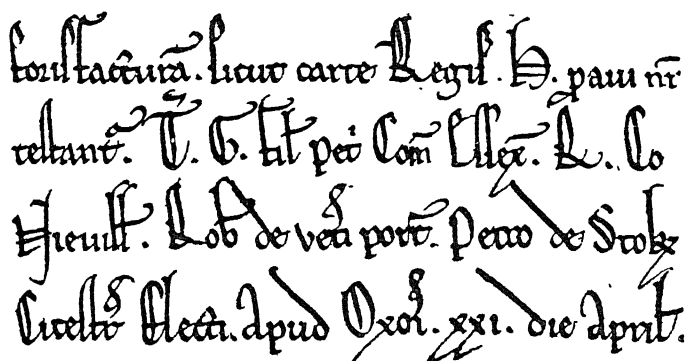 foriſfacturā. ſicut carte Regiſ. H. paui nr̄i
teſtant̄. T̄. G. fił pet̕ Com̄ Eſſex̄. R. Co
Nieuiłł. Rob̄ de vet̕i pont̄. Petro de Stok̄
Ciceſtr̄ Electi. Apud Oxon̄. xxi. die Aprił.